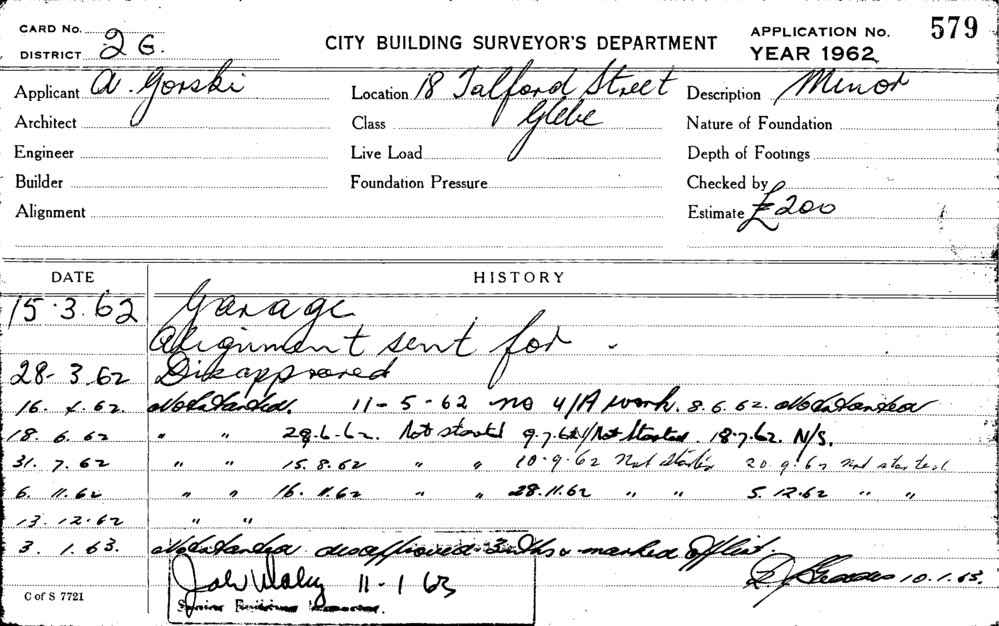 CARD No.
DISTRICT 2 G.
CITY BUILDING SURVEYOR'S DEPARTMENT
APPLICATION No. 579
YEAR 1962
Applicant A. Gorski Location 18 Talford Street Description Minor
Architect Class Glebe Nature of Foundation
Engineer Live Load Depth of Footings
Builder Foundation Pressure Checked by
Alignment Estimate £200
DATE HISTORY
15.3.62 Garage
Alignment sent for.
28-3.62 Disapproved
16.4.62. Not Started. 11-5-62 no U/A work. 8.6.62. Not Started
18.6.62 " " 29.6.62. Not started 9.7.62 Not Started. 18.7.62. N/S.
31.7.62 " " 15.8.62 " " 10.9.62 Not Started 20.9.62 not started
6.11.62 " " 16.11.62 " " 28.11.62 " " 5.12.62 " "
13.12.62 " "
3.1.63. Not Started disapproved 3 mths & marked off list.
11-1 63
10.1.63.
Senior Building
C of S 7721